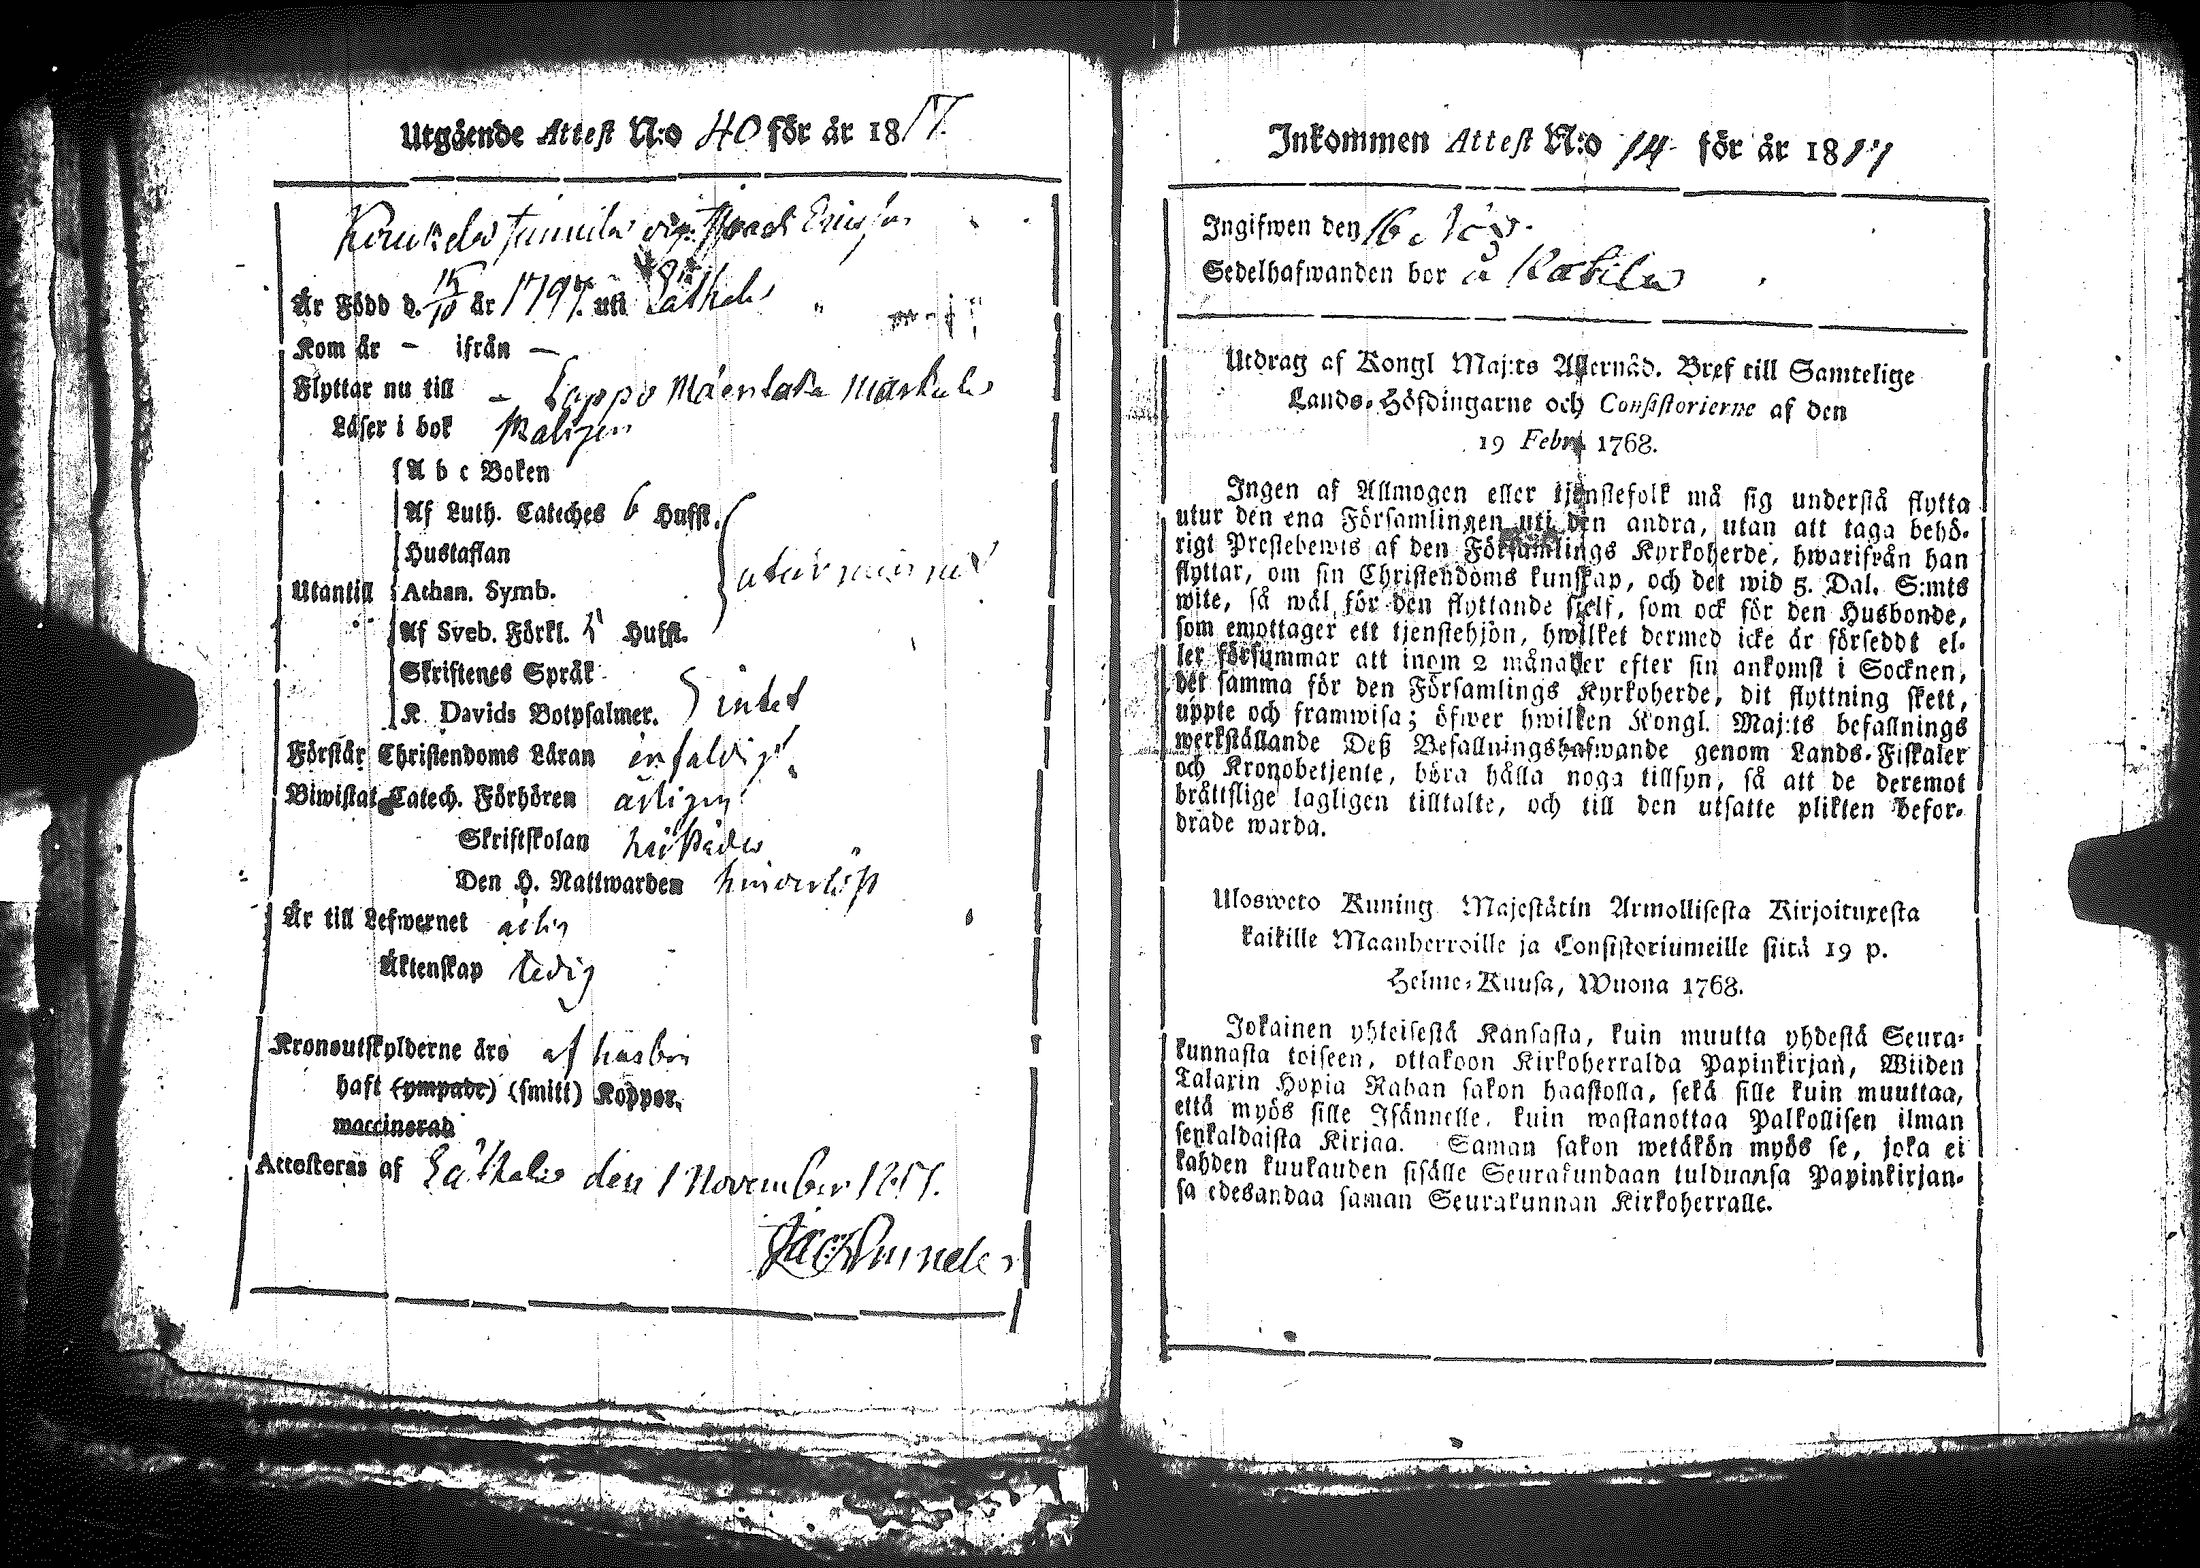 Utgående Attest N:o 40 för år 1817.
Isaac Ericsson
Är Född d. 15/10 år 1797. uti
Kom år - ifrån -
Flyttar nu till - Lappo Måenlaka
Läser i bok
A b c Boken
Af Luth. Cateches 6 Hufst.
Hustaflan
Utantill Athan. Symb.
Af Sveb. Förkl. 5 Hufst.
Skriftenes Språk
K. Davids Botpsalmer. intet
Förstår Christendoms Läran enfaldigt
Biwistat Catech. Förhören årligen
Skriftskolan
Den H. Nattwarden hinderlöst
Är till Lefwernet ärlig
Äktenskap ledig
Kronoutskylderne äro af husbon
haft (ympade) (smitt) Koppor.
waccinerad
Attesteras af den 1 November 1817.
Inkommen Attest N:o 14 för år 1817
Ingifwen den 16 Nov.
Sedelhafwanden bor å
Utdrag af Kongl Maj:ts Allernåd. Bref till Samtelige
Lands-Höfdingarne och Consistorierne af den
19 Febr. 1768.
Ingen af Allmogen eller tjenstefolk må sig understå flytta
utur den ena Församlingen uti den andra, utan att taga behö-
rigt Prestebewis af den Församlings Kyrkoherde, hwarifrån han
flyttar, om sin Christendoms kunskap, och det wid 5. Dal. S:mts
wite, så wäl för den flyttande sjelf, som ock för den Husbonde,
som emottager ett tjenstehjon, hwilket dermed icke är försedt el-
ler försummar att inom 2 månader efter sin ankomst i Socknen,
det samma för den Församlings Kyrkoherde, dit flyttning skett,
uppte och framwisa; öfwer hwilken Kongl. Maj:ts befallnings
werkställande Deß Befallningshafwande genom Lands-Fiskaler
och Kronobetjente, böra hålla noga tillsyn, så att de deremot
bråttslige lagligen tilltalte, och till den utsatte plikten befor-
drade warda.
Ulosweto Kuning Majestätin Armollisesta Kirjoituxesta
kaikille Maanherroille ja Consistoriumeille siitä 19 p.
Helme-Kuusa, Wuona 1768.
Jokainen yhteisestä Kansasta, kuin muutta yhdestä Seura-
kunnasta toiseen, ottakoon Kirkoherralda Papinkirjan, Wiiden
Talarin Hopia Rahan sakon haastolla, sekä sille kuin muuttaa,
että myös sille Isännelle, kuin wastanottaa Palkollisen ilman
senkaldaista Kirjaa. Saman sakon wetäkön myös se, joka ei
kahden kuukauden sisälle Seurakundaan tulduansa Papinkirjan-
sa edesandaa saman Seurakunnan Kirkoherralle.